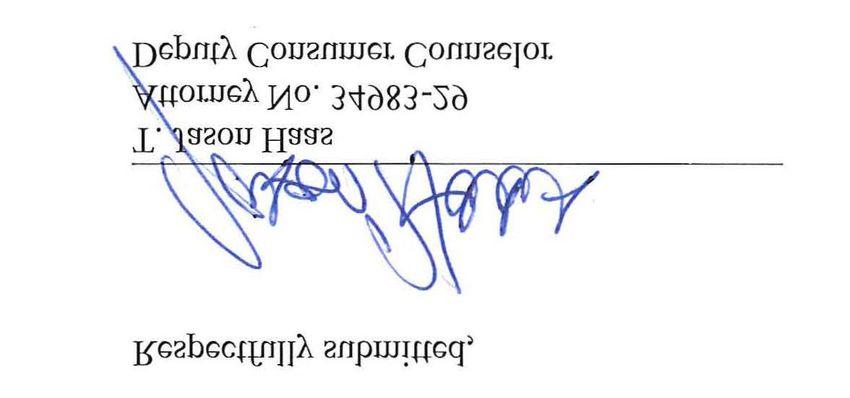 Respectfully submitted,
Jason Haas
T. Jason Haas
Attorney No. 34983-29
Deputy Consumer Counselor